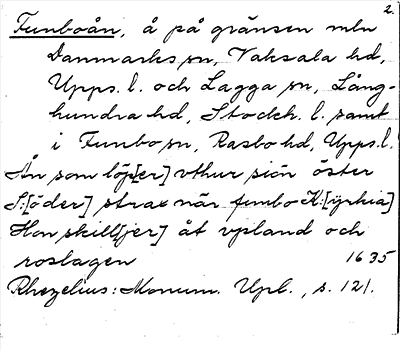 2.
Funboån, å på gränsen mln
Danmarks sn, Vaksala hd,
Upps. l. och Lagga sn, Lång-
hundra hd, Stockh. l. samt
i Funbo sn, Rasbo hd, Upps. l.
Ån som löp[er] vthur siön öster
S:[öder] strax när funbo K:[yrkia]
Hon skill[jer] åt vpland och
roslagen 1635
Rhezelius: Monum. Upl., s. 121.